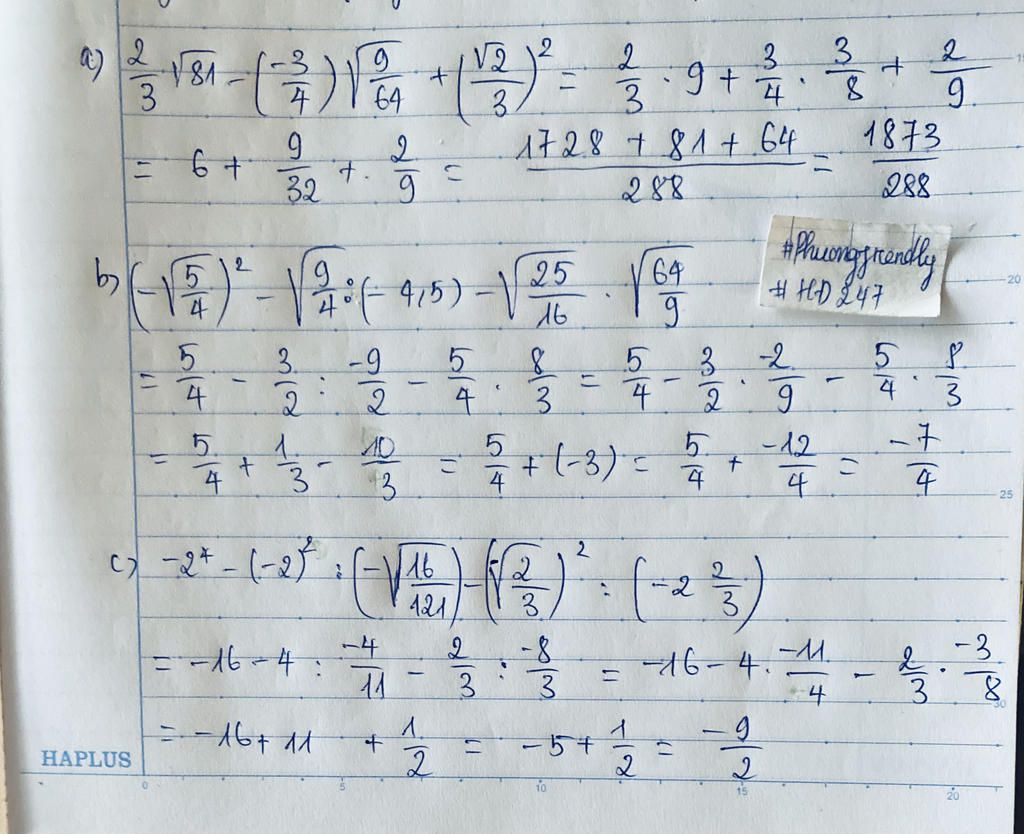 a) 2/3 √81 - (-3/4) √(9/64) + (√2/3)² = 2/3 · 9 + 3/4 · 3/8 + 2/9
= 6 + 9/32 + 2/9 = (1728 + 81 + 64)/288 = 1873/288
#Phuongfrendly
# HD 247
b) (-√(5/4))² - √(9/4) : (-4,5) - √(25/16) · √(64/9)
= 5/4 - 3/2 : -9/2 - 5/4 · 8/3 = 5/4 - 3/2 · -2/9 - 5/4 · 8/3
= 5/4 + 1/3 - 10/3 = 5/4 + (-3) = 5/4 + -12/4 = -7/4
c) -2⁴ - (-2)² : (-√(16/121)) - (-√(2/3))² : (-2 2/3)
= -16 - 4 : -4/11 - 2/3 : -8/3 = -16 - 4 · -11/4 - 2/3 · -3/8
= -16 + 11 + 1/2 = -5 + 1/2 = -9/2
HAPLUS
0 5 10 15 20
20
25
30